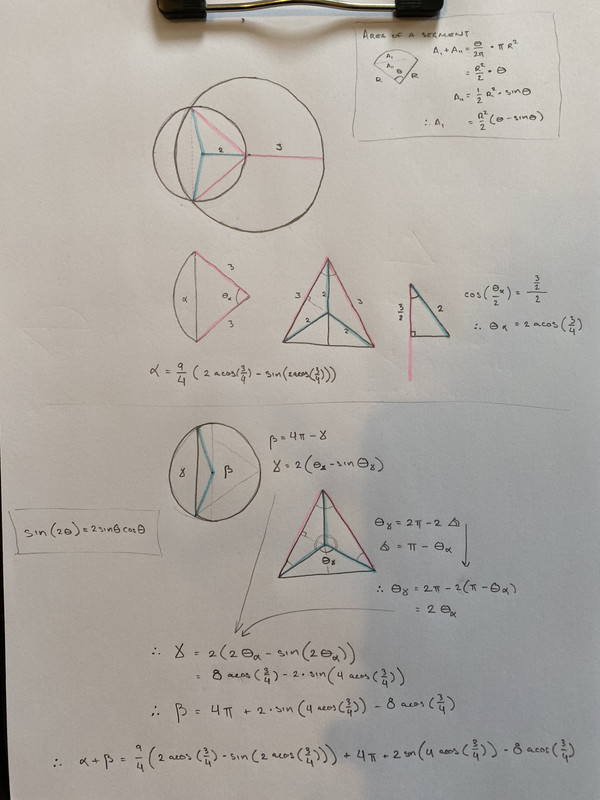 AREA OF A SEGMENT
A₁ + A₁₁ = θ/2π · π R²
= R²/2 · θ
A₁₁ = 1/2 R² · sinθ
∴ A₁ = R²/2 (θ - sinθ)
A₁
A₁₁
θ
R R
2 3
α θα 3 3
3 2 3 2 2
3/2 2
cos(θα/2) = 3/2 / 2
∴ θα = 2 acos(3/4)
α = 9/4 ( 2 acos(3/4) - sin(2acos(3/4)))
γ β
β = 4π - γ
γ = 2(θγ - sin θγ)
sin(2θ) = 2 sinθ cosθ
θγ
θγ = 2π - 2 ⦛
⦛ = π - θα
∴ θγ = 2π - 2(π - θα)
= 2 θα
∴ γ = 2(2θα - sin(2θα))
= 8 acos(3/4) - 2 · sin(4 acos(3/4))
∴ β = 4π + 2 · sin(4 acos(3/4)) - 8 acos(3/4)
∴ α + β = 9/4 (2 acos(3/4) - sin(2 acos(3/4))) + 4π + 2 sin(4 acos(3/4)) - 8 acos(3/4)